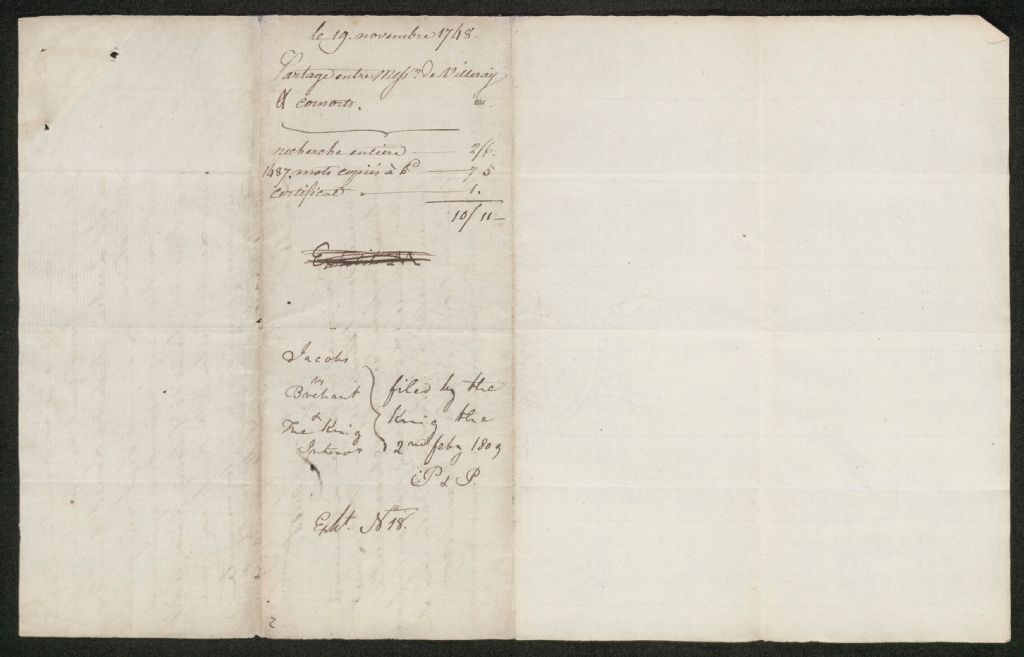 le 19. novembre 1748.
Partage entre Messrs. de Villeray
& consorts.
recherche entiere — 2/6.
1487. mots copiés à 6d — 7. 5
certificat — 1.
10/11 —
Jacobs
vs
Brehaut
&
The King
Interv
filed by the
King the
2nd feby 1809
P & P.
Exht. No 18.
2